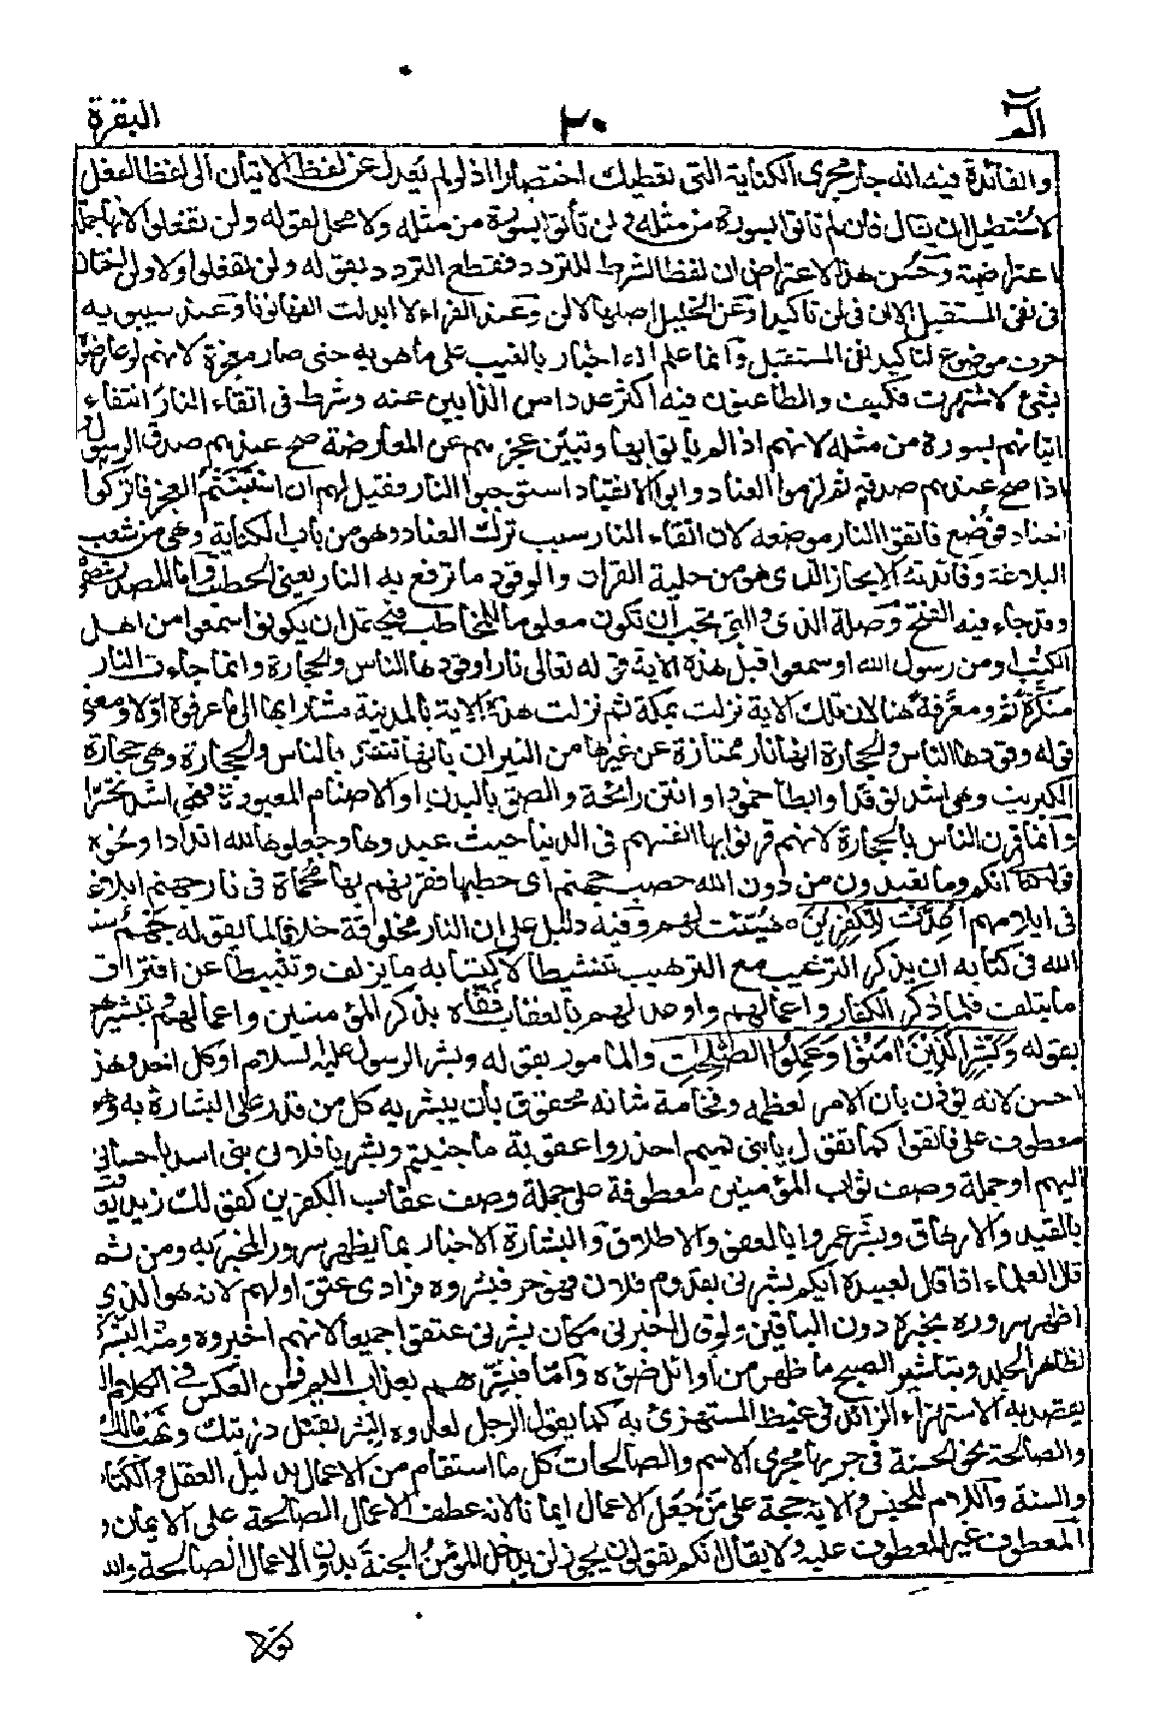 الم ٢٠ البقرة
والفائدة فيه انه جار مجرى الكناية التى تعطيك اختصارا اذ لو لم يعدل عن لفظ الاتيان الى لفظ الفعل
لاستطيل ان يقال فان لم تاتوا بسورة من مثله ولن تأتوا بسورة من مثله ولا محل لقوله ولن تفعلوا لانها جملة
اعتراضية وحسن هذا الاعتراض ان لفظ الشرط للتردد فقطع التردد بقوله ولن تفعلوا ولا ولن اختان
فى نفى المستقبل الا ان فى لن تاكيدا وعن الخليل اصلها لا ان وعند الفراء لا ابدلت الفها نونا وعند سيبويه
حرف موضوع لتأكيد نفى المستقبل وانما علم انه اخبار بالغيب على ما هو به حتى صار معجزة لانهم لو عارضوه
بشئ لاشتهر فكيف والطاعنون فيه اكثر عددا من الذابين عنه وشرط فى اتقاء النار انتفاء
اتيانهم بسورة من مثله لانهم اذا لم ياتوا بها وتبين عجزهم عن المعارضة صح عندهم صدق الرسول
اذا صح عندهم صدقه ثم لزموا العناد وابوا الانقياد استوجبوا النار فقيل لهم ان استبنتم العجز فاتركوا
العناد فوضع فاتقوا النار موضعه لان اتقاء النار سبب ترك العناد وهو من باب الكناية وهى من شعب
البلاغة وفائدته الايجاز الذى هو من حلية القرآن والوقود ما ترفع به النار يعنى الحطب واما المصدر فمضموم
وقد جاء فيه الفتح وصلة الذى والتى يجب ان تكون معلوما للمخاطب فيحتمل ان يكونوا سمعوا من اهل
الكتب ومن رسول الله او سمعوا قبل هذه الآية قوله تعالى نارا وقودها الناس والحجارة وانما جاءت النار
منكرة ثم ومعرفة هنا لان تلك الاية نزلت بمكة ثم نزلت هذه الاية بالمدينة مشارا بها الى ما عرفوه اولا ومعنى
قوله وقودها الناس والحجارة انها نار ممتازة عن غيرها من النيران بانها تتقد بالناس والحجارة وهى حجارة
الكبريت وهى اشد توقدا وابطأ خمودا وانتن رائحة والصق بالبدن او الاصنام المعبودة فهى اشد تحسرا
وانما قرن الناس بالحجارة لانهم قرنوا بها انفسهم فى الدنيا حيث عبدوها وجعلوها لله اندادا ونحوه
قوله تعالى انكم وما تعبدون من دون الله حصب جهنم اى حطبها فقرنهم بها محماة فى نار جهنم ابلاغا
فى ايلامهم اعدت للكفرين ه هيئت لهم وفيه دليل على ان النار مخلوقة خلافا لما يقوله جهم سنة
الله فى كتابه ان يذكر الترغيب مع الترهيب تنشيطا لاكتساب ما يزلف وتثبيطا عن اقتراف
ما يتلف فلما ذكر الكفار واعمالهم واوعدهم بالعقاب قفاه بذكر المؤمنين واعمالهم وتبشيرهم
بقوله وَبَشِّرِ الَّذِينَ اٰمَنُوا وَعَمِلُوا الصّٰلِحٰتِ والمامور بقوله وبشر الرسول عليه السلام او كل احد وهذا
احسن لانه يؤذن بان الامر لعظمه وفخامة شانه محقوق بأن يبشر به كل من قدر على البشارة به وهو
معطوف على فاتقوا كما تقول يا بنى تميم احذروا عقوبة ما جنيتم وبشر يا فلان بنى اسد باحسانى
اليهم او جملة وصف ثواب المؤمنين معطوفة على جملة وصف عقاب الكفرين كقولك زيد يعاقب
بالقيد والارهاق وبشر عمروا بالعفو والاطلاق والبشارة الاخبار بما يظهر سرور المخبر به ومن ثم
قال العلماء اذا قال لعبيده ايكم بشرنى بقدوم فلان فهو حر فبشروه فرادى عتق اولهم لانه هو الذى
اظهر سروره بخبره دون الباقين ولو قال اخبرنى مكان بشرنى عتقوا جميعا لانهم اخبروه ومنه البشرة
لظاهر الجلد وتباشير الصبح ما ظهر من اوائل ضوئه واما فبشرهم بعذاب اليم فمن العكس فى الكلام الذى
يقصد به الاستهزاء الزائد فى غيظ المستهزئ به كما يقول الرجل لعدوه ابشر بقتل ذريتك ونهب مالك
والصالحة نحو الحسنة فى جريها مجرى الاسم والصالحات كل ما استقام من الاعمال بدليل العقل والكتاب
والسنة واللام للجنس والاية حجة على من جعل الاعمال ايمانا لانه عطف الاعمال الصالحة على الايمان و
المعطوف غير المعطوف عليه ولا يقال انكم تقولون يجوز ان يدخل المؤمن الجنة بدون الاعمال الصالحة والله